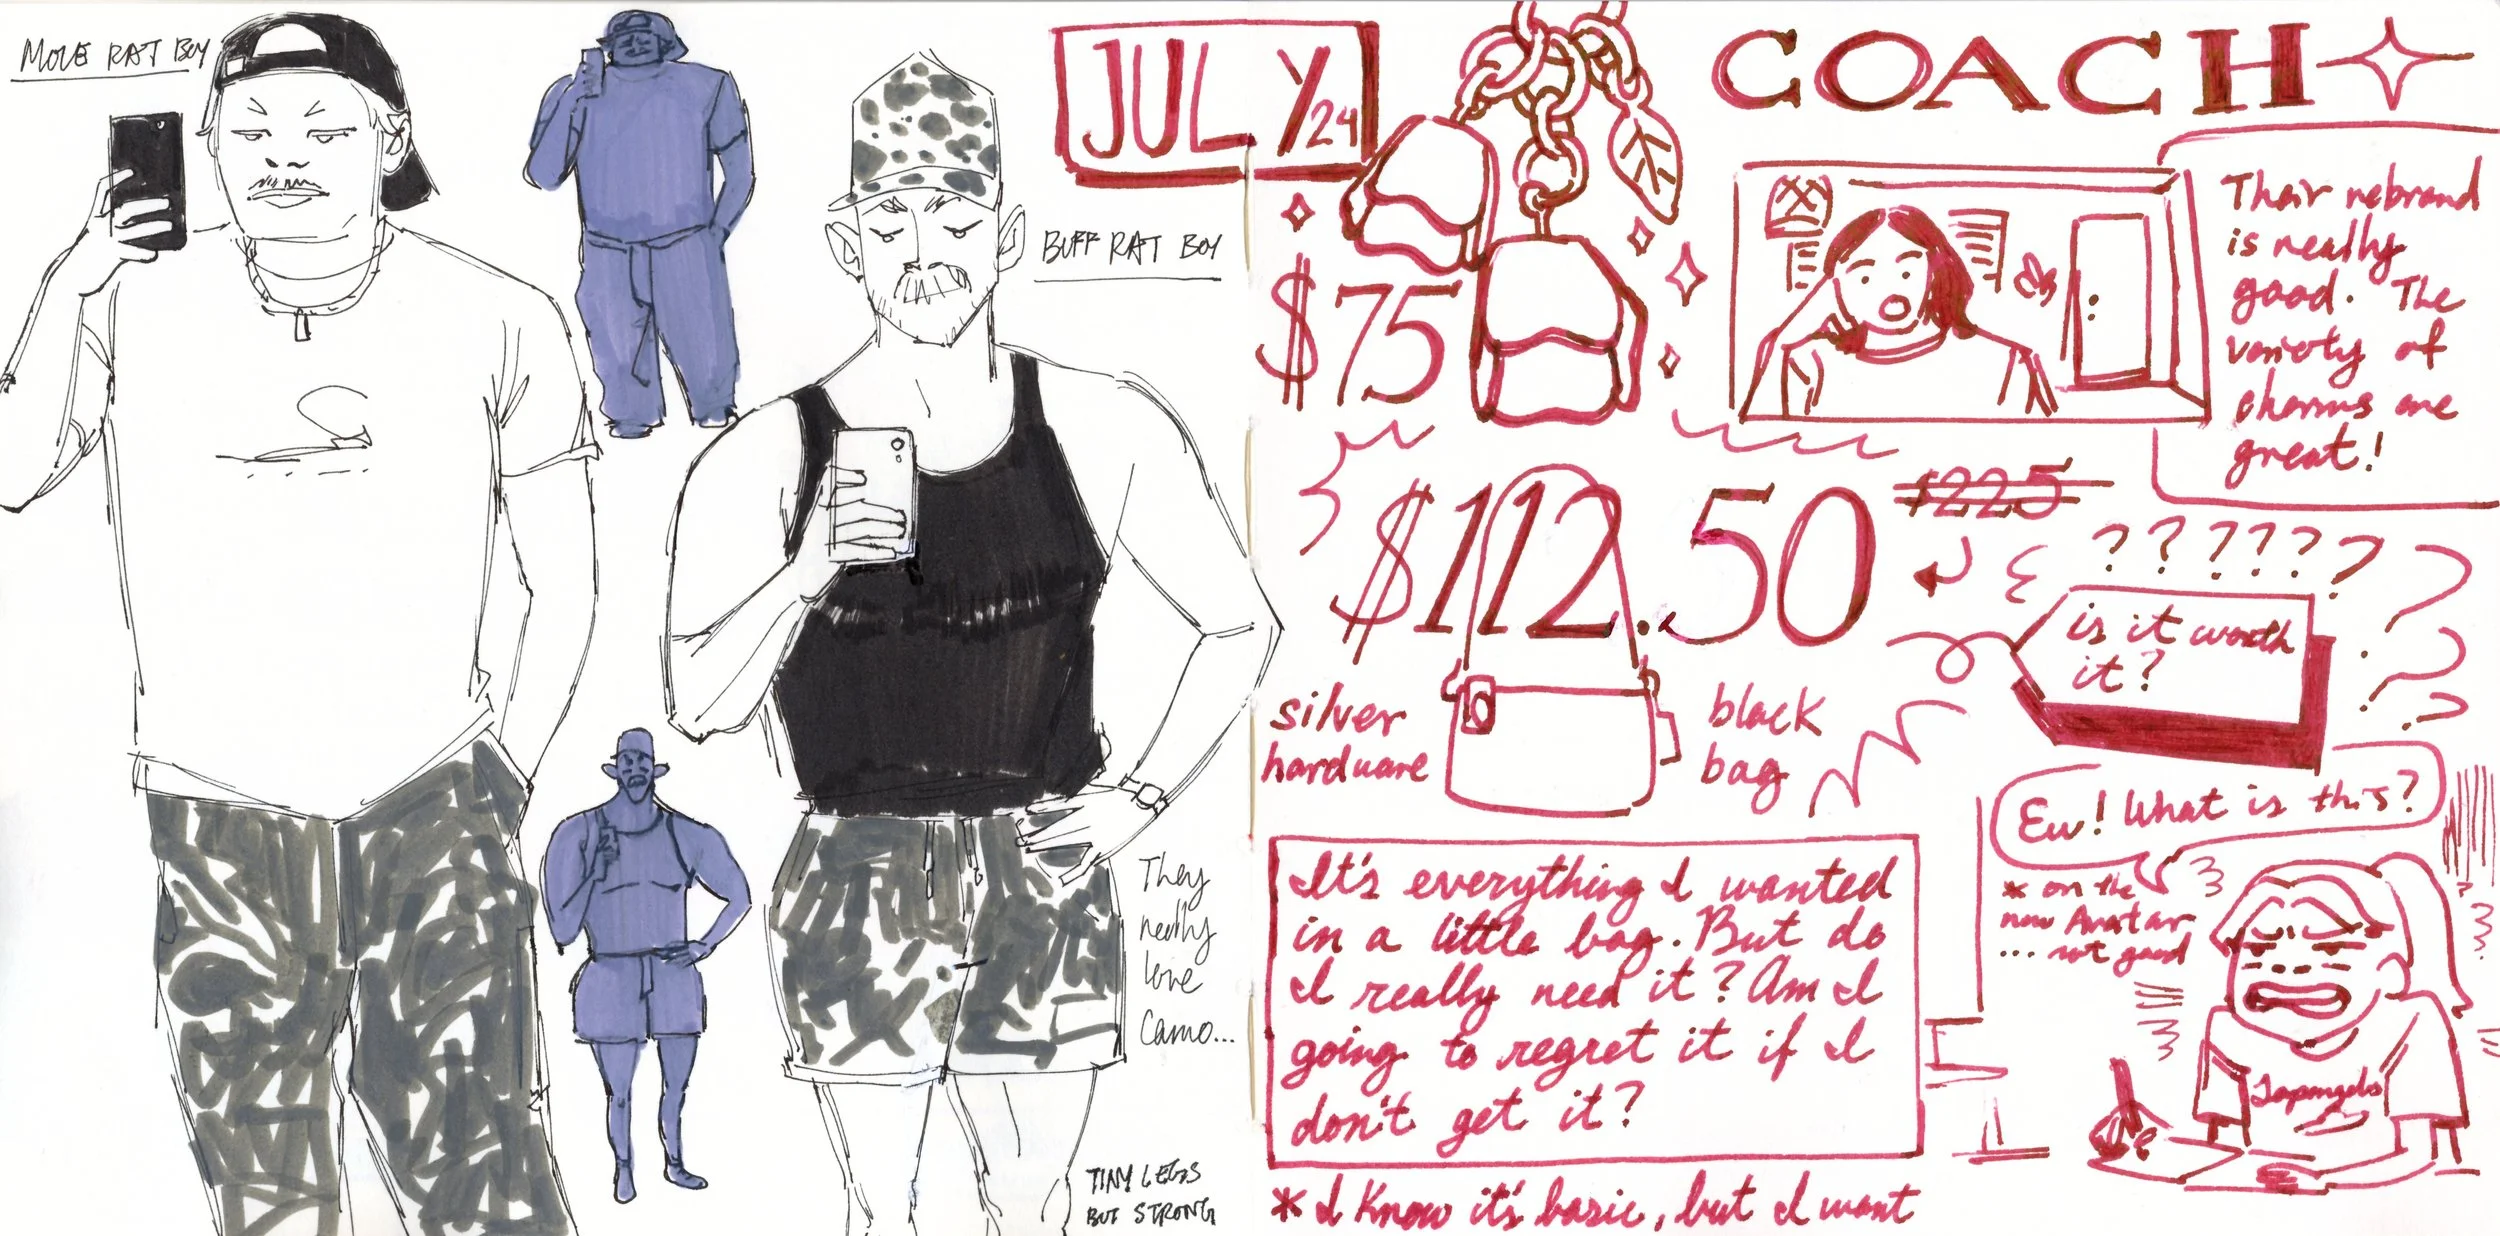 MOVE RAT BOY
BUFF RAT BOY
They
really
love
Camo...
TINY LEGS
BUT STRONG
JULY/24
COACH
$75
Their rebrand
is really
good. The
variety of
charms are
great!
$112.50
$225
??????
is it worth
it?
silver
hardware
black
bag
Ew! What is this?
* on the
new Avatar
... not good
It's everything I wanted
in a little bag. But do
I really need it? Am I
going to regret it if I
don't get it?
* I know it's basic, but I want